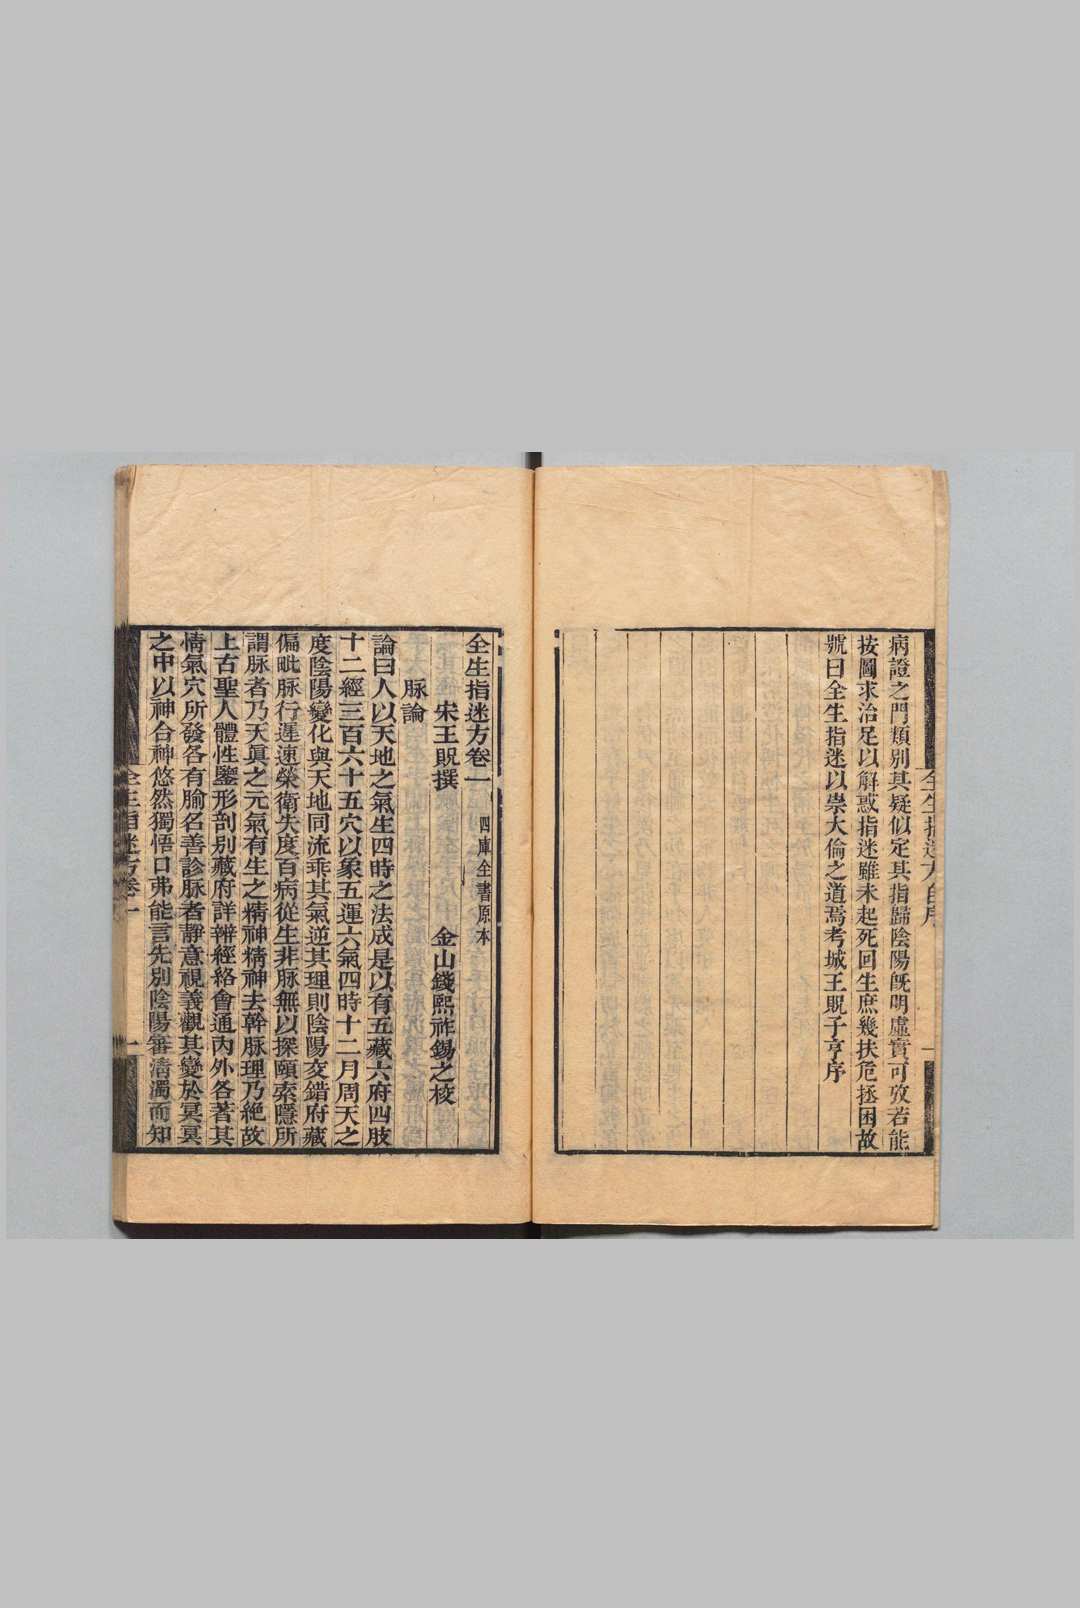 病證之門類別其疑似定其指歸陰陽既明虛實可攷若能
按圖求治足以解惑指迷雖未起死回生庶幾扶危拯困故
號曰全生指迷以崇大倫之道焉考城王貺子亨序
全生指迷方卷一 四庫全書原本
宋王貺撰 金山錢熙祚錫之校
脈論
論曰人以天地之氣生四時之法成是以有五藏六府四肢
十二經三百六十五穴以象五運六氣四時十二月周天之
度陰陽變化與天地同流乖其氣逆其理則陰陽交錯府藏
偏毗脈行遲速榮衛失度百病從生非脈無以探頤索隱所
謂脈者乃天真之元氣有生之精神精神去幹脈理乃絶故
上古聖人體性鑒形剖別藏府詳辨經絡會通內外各著其
情氣穴所發各有腧名善診脈者靜意視義觀其變於冥冥
之中以神合神悠然獨悟口弗能言先別陰陽審清濁而知
全生指迷方卷一